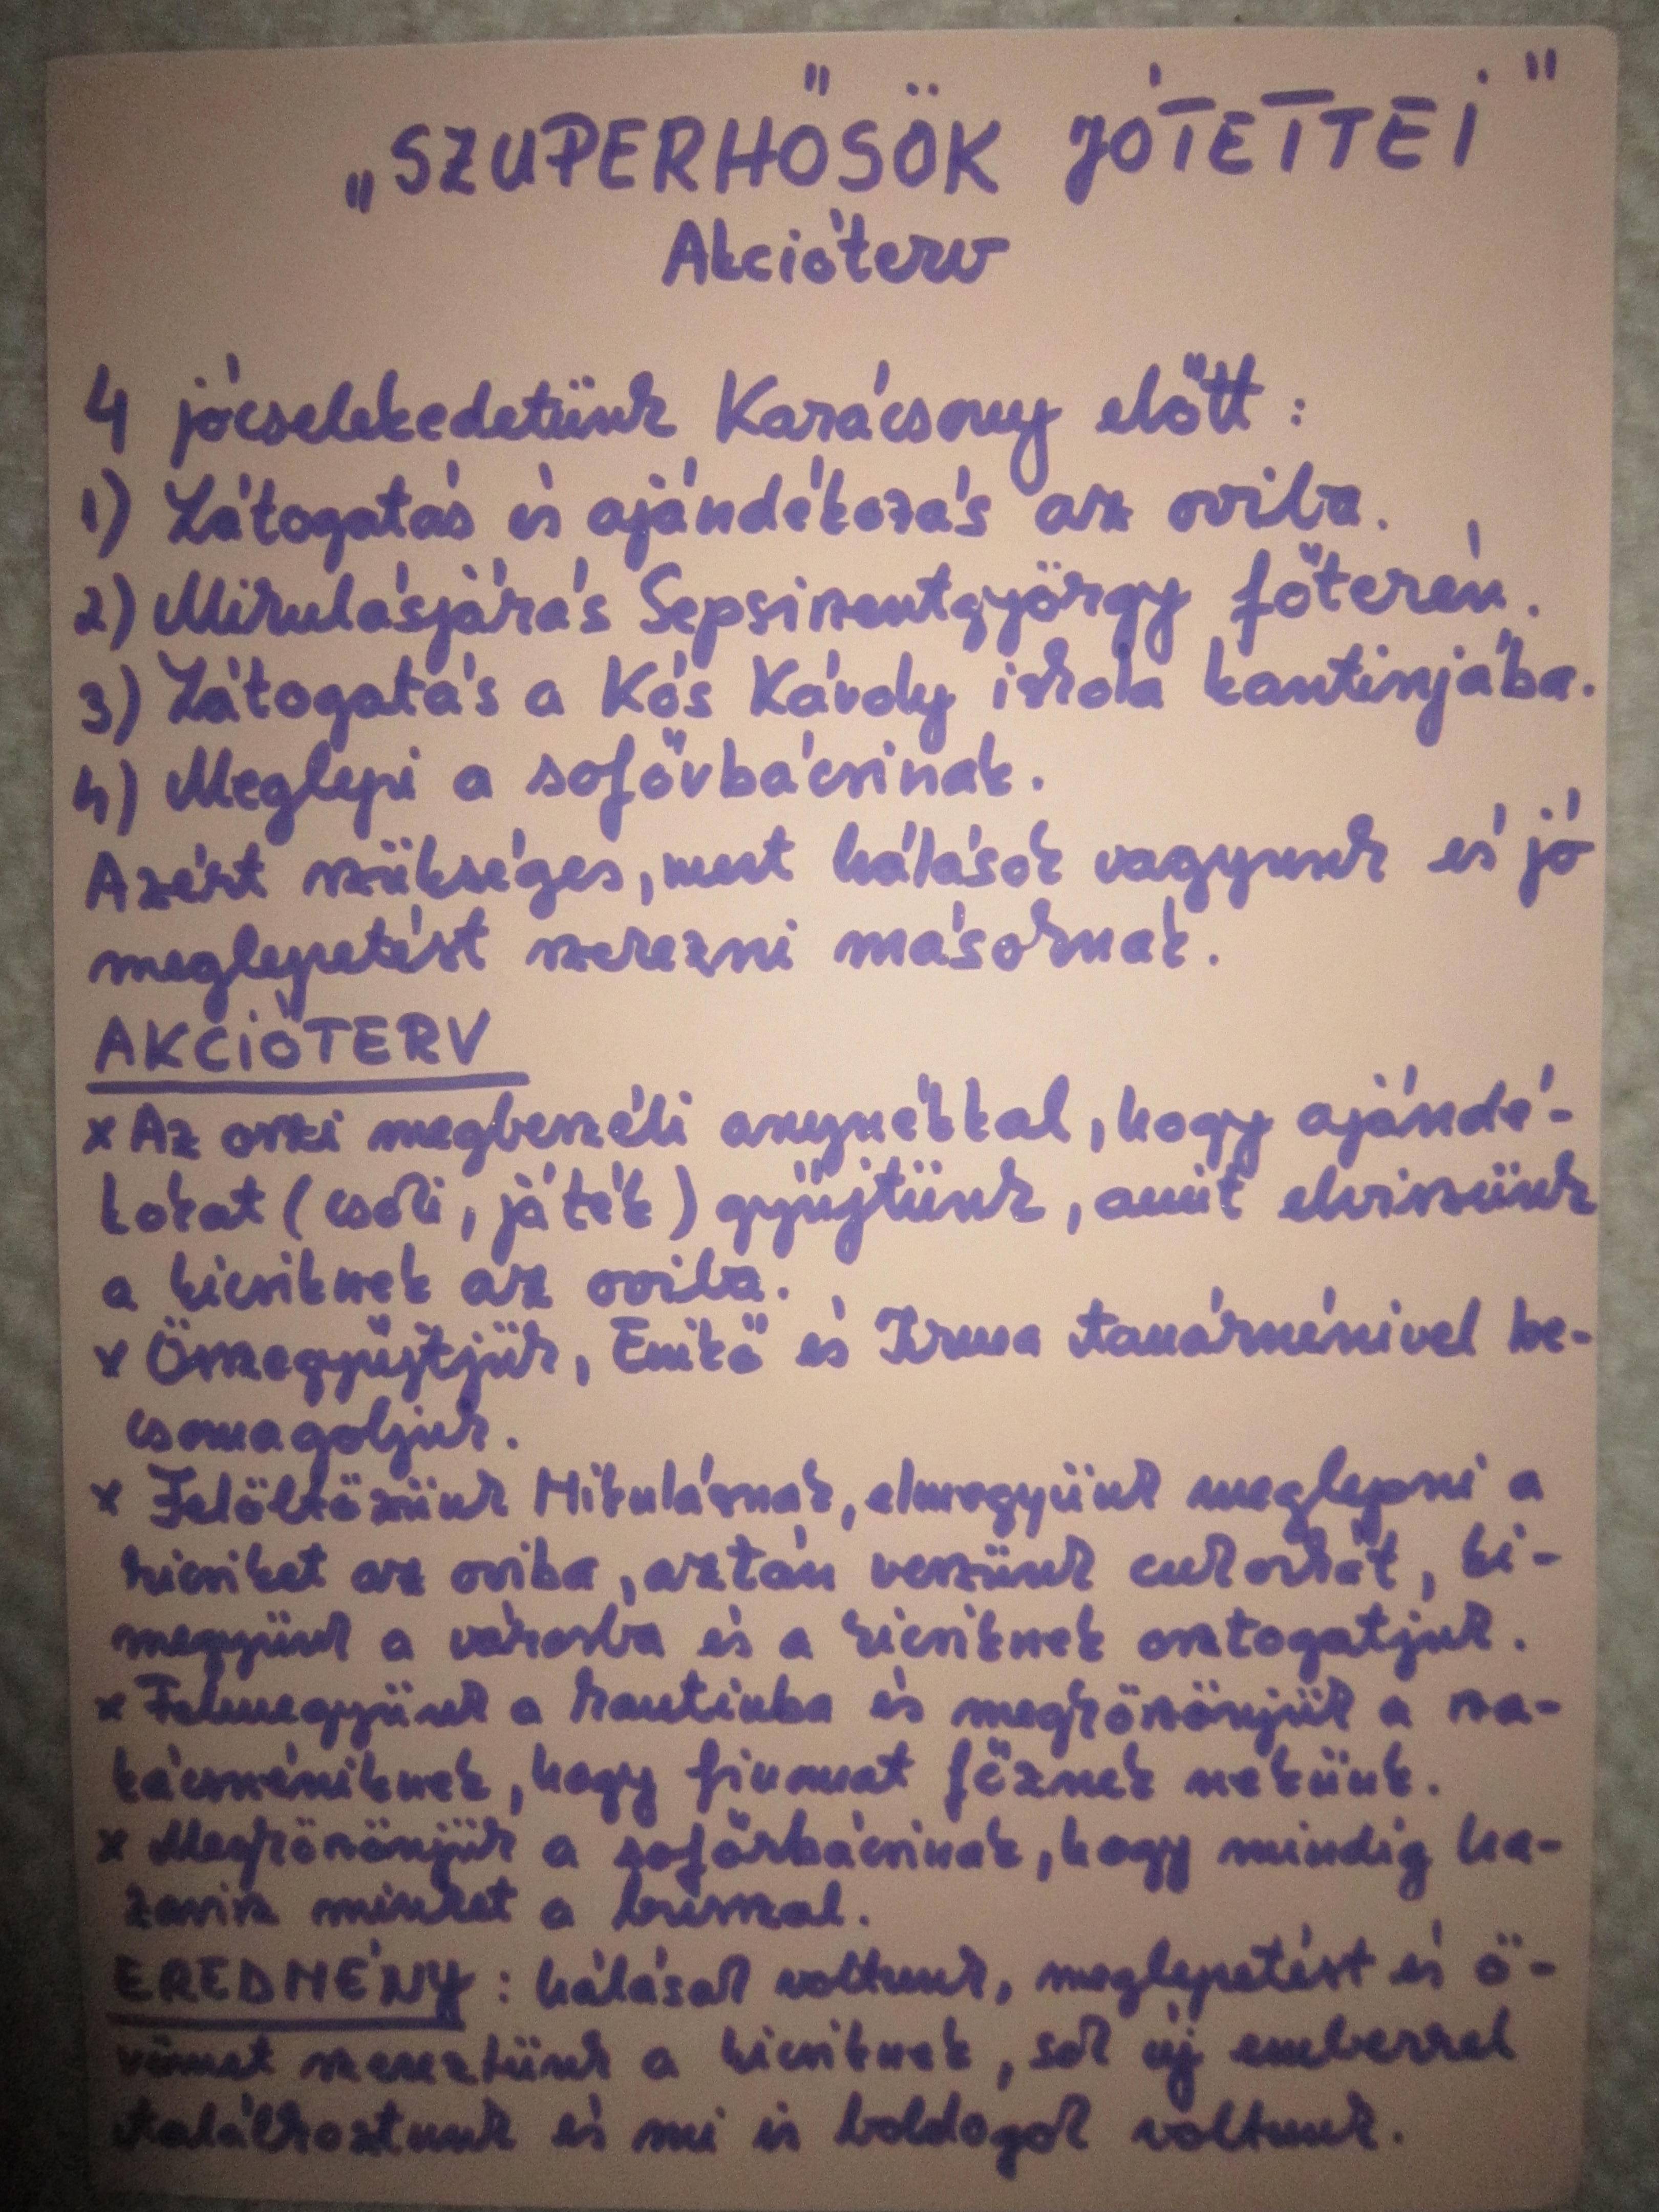 „SZUPERHŐSÖK JÓTETTEI"
Akcióterv
4 jócselekedetünk Karácsony előtt:
1) Látogatás és ajándékozás az oviba.
2) Mikulásjárás Sepsiszentgyörgy főterén.
3) Látogatás a Kós Károly iskola kantinjába.
4) Meglepi a sofőrbácsinak.
Azért szükséges, mert hálásak vagyunk és jó
meglepetést szerezni másoknak.
AKCIÓTERV
x Az oszi megbeszéli anyuékkal, hogy ajándé-
kokat (csoki, játék) gyűjtünk, amit elviszünk
a kicsiknek az oviba.
x Összegyűjtjük, Enikő és Irma tanárnénivel be-
csomagoljuk.
x Felöltözünk Mikulásnak, elmegyünk meglepni a
kicsiket az oviba, aztán veszünk cukorkát, ki-
megyünk a városba és a kicsiknek osztogatjuk.
x Felmegyünk a kantinba és megköszönjük a sza-
kácsnéniknek, hogy finomat főznek nekünk.
x Megköszönjük a sofőrbácsinak, hogy mindig ha-
zavisz minket a busszal.
EREDMÉNY: hálásak voltunk, meglepetést és ö-
römet szereztünk a kicsiknek, sok új emberrel
találkoztunk és mi is boldogok voltunk.